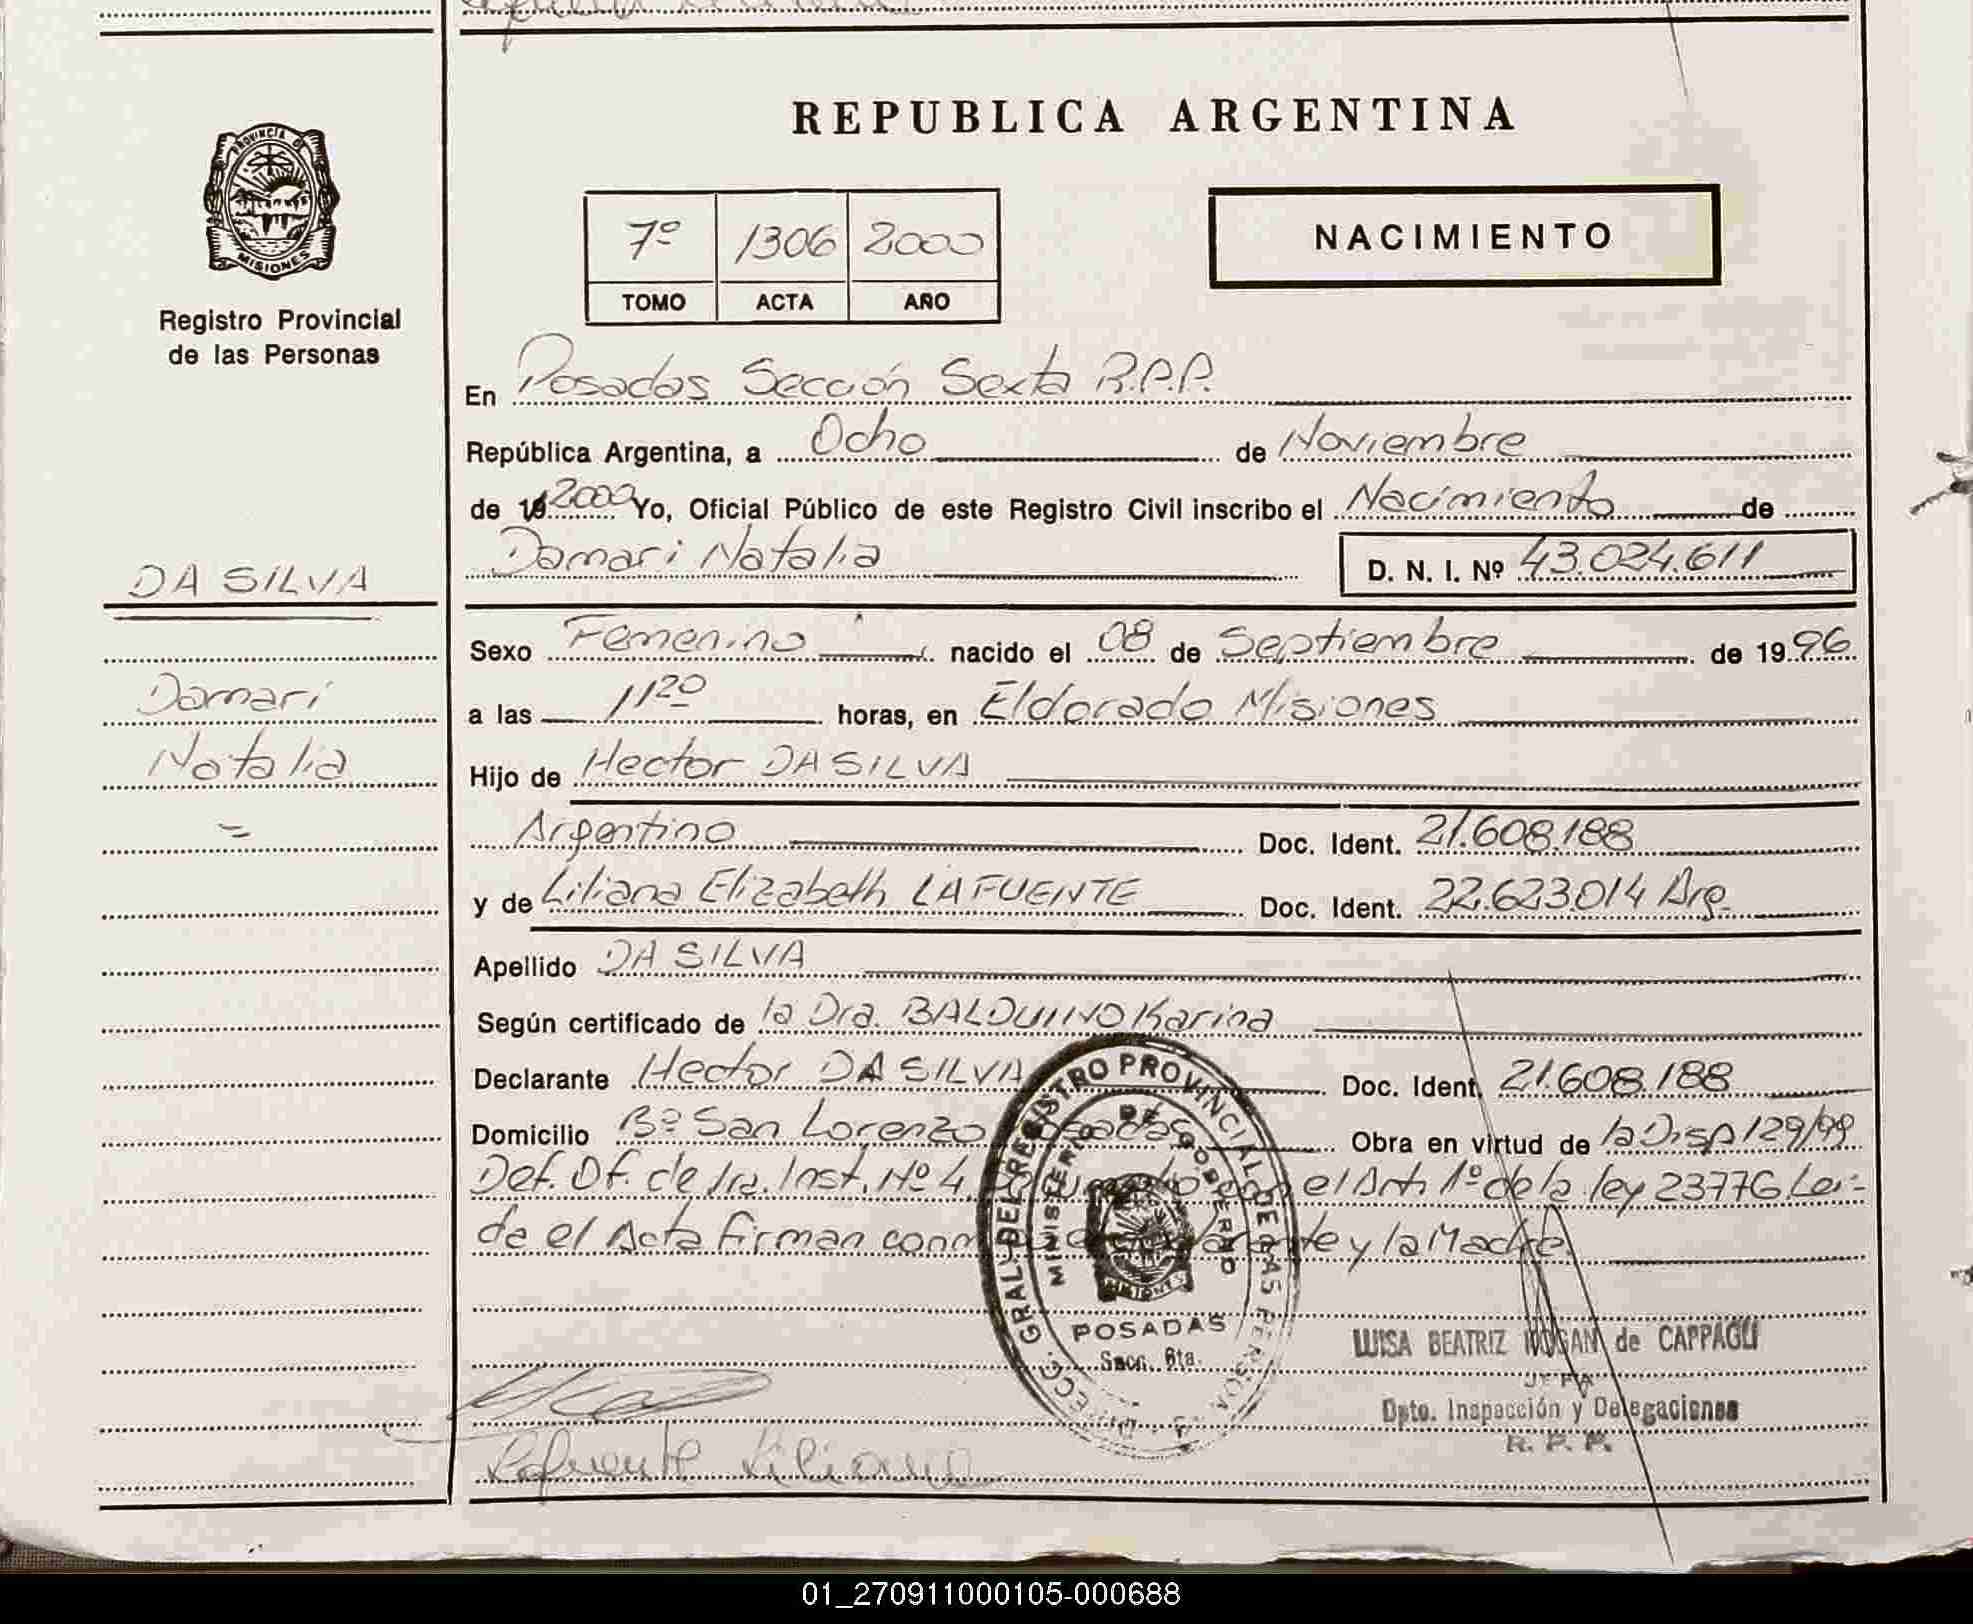 REPUBLICA ARGENTINA
PROVINCIA DE
MISIONES
Registro Provincial
de las Personas
7º 1306 2000
TOMO ACTA AÑO
NACIMIENTO
En Posadas Sección Sexta R.P.P.
República Argentina, a Ocho de Noviembre
de 19 2000 Yo, Oficial Público de este Registro Civil inscribo el Nacimiento de
Damari Natalia D. N. I. Nº 43.024.611
DA SILVA
Damari
Natalia
Sexo Femenino nacido el 08 de Septiembre de 1996
a las 11 20 horas, en Eldorado Misiones
Hijo de Hector DA SILVA
Argentino Doc. Ident. 21.608.188
y de Liliana Elizabeth LAFUENTE Doc. Ident. 22.623.014 Arg.
Apellido DA SILVA
Según certificado de la Dra. BALDUINO Karina
Declarante Hector DA SILVA Doc. Ident. 21.608.188
Domicilio Bº San Lorenzo Posadas Obra en virtud de la Disp 129/99
Def. Of. de 1ra. Inst. Nº 4 el Art. 1º de la ley 23776 Lei-
da el Acta firman y la Madre.
GRAL. DEL REGISTRO PROVINCIAL DE LAS PERSONAS
MINISTERIO DE GOBIERNO
MISIONES
POSADAS
Secc. 6ta.
LUISA BEATRIZ de CAPPAGLI
JEFA
Dpto. Inspección y Delegaciones
R. P. P.
Lafuente Liliana
01_270911000105-000688